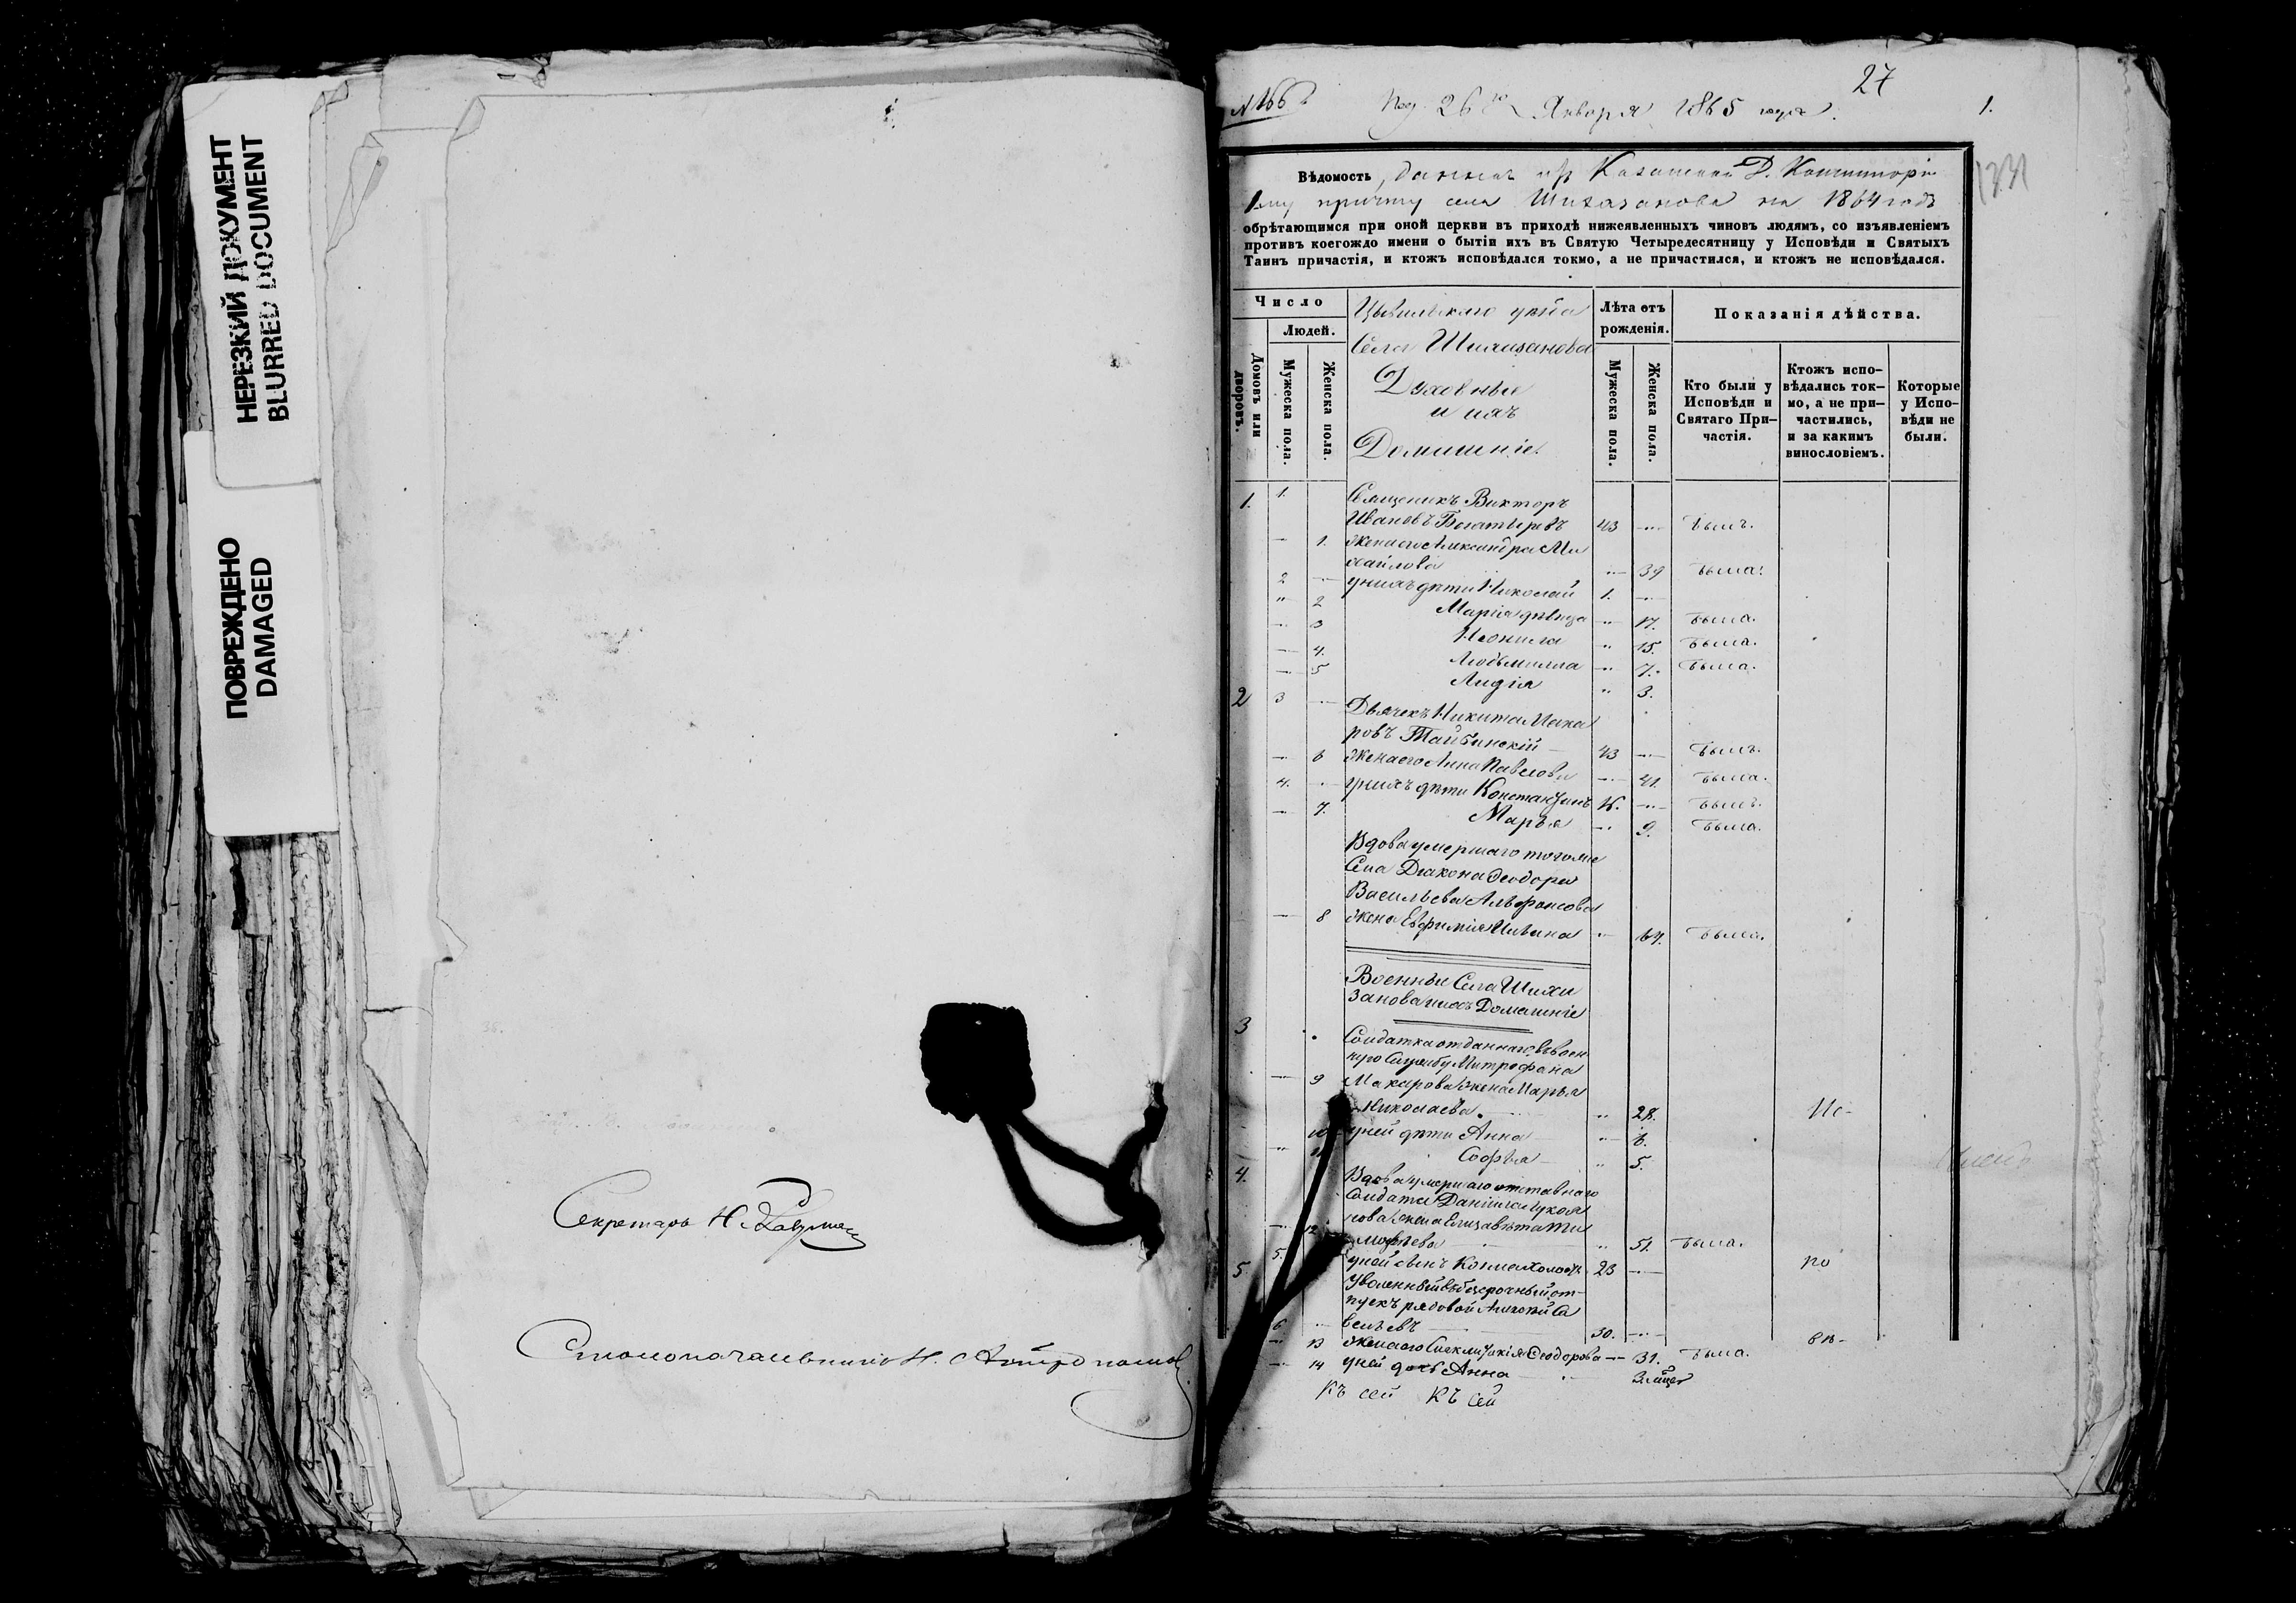 НЕРЕЗКИЙ ДОКУМЕНТ
BLURRED DOCUMENT
ПОВРЕЖДЕНО
DAMAGED
Секретарь Н.
Столоначальникъ Н.
27
№ 166 Под 26го Января 1865 года. 1.
Вѣдомость, данная изъ Казанской Д. Консисторіи
1му причту села Шихазанова на 1864 годъ
обрѣтающимся при оной церкви въ приходѣ нижеявленныхъ чиновъ людямъ, со изъявленіемъ
противъ коегождо имени о бытіи ихъ въ Святую Четыредесятницу у Исповѣди и Святыхъ
Таинъ причастія, и ктожъ исповѣдался токмо, а не причастился, и ктожъ не исповѣдался.
Число
Людей.
Домовъ или дворовъ.
Мужеска пола.
Женска пола.
Цывильскаго уѣзда
Села Шихазанова
Духовные
и ихъ
Домашніе.
Лѣта отъ
рожденія.
Мужеска пола.
Женска пола.
Показанія дѣйства.
Кто были у
Исповѣди и
Святаго При-
частія.
Ктожъ испо-
вѣдались ток-
мо, а не при-
частились,
и за какимъ
винословіемъ.
Которые
у Испо-
вѣди не
были.
1. 1. Священикъ Викторъ
Ивановъ Богатыревъ 43 былъ.
1. Жена его Александра Ми
хайлова 39 была.
2 у нихъ дѣти Николай 1.
2 Марія дѣвица 17. была.
3 Неонила 15. была.
4. Людьмилла 7. была.
5 Лидія 3.
2 3 Дьячекъ Никита Мака
ровъ Тайбинскій 43 былъ.
6 Жена его Анна Павлова 41. была.
4. у нихъ дѣти Константинъ былъ.
7. Марья 9. была.
Вдова умершаго тогоже
Села Діакона Ѳеодора
Васильева Альфонсова
8 жена Евфимія 64. была.
Военные Села Шихи
занова и ихъ Домашніе
3 Солдатка отданнаго въ воен
ную Службу Митрофана
9 Макарова жена Марья
Николаева. 28. Не-
10 у ней дѣти Анна 6.
11 Софья 5.
4. Вдова умершаго отставнаго
Солдата Даніила Лукоя
нова жена Елизавѣта Ти
12 моѳѣева 51. была.
5. у ней сынъ Козма холост. 23 по
5. Уволенный въ безсрочный от-
пускъ рядовой Алексѣй Са
6 вельевъ 30. вн-
13 Жена его Ѳеодорова 31. была.
14 у ней дочь Анна
Къ сей Къ сей